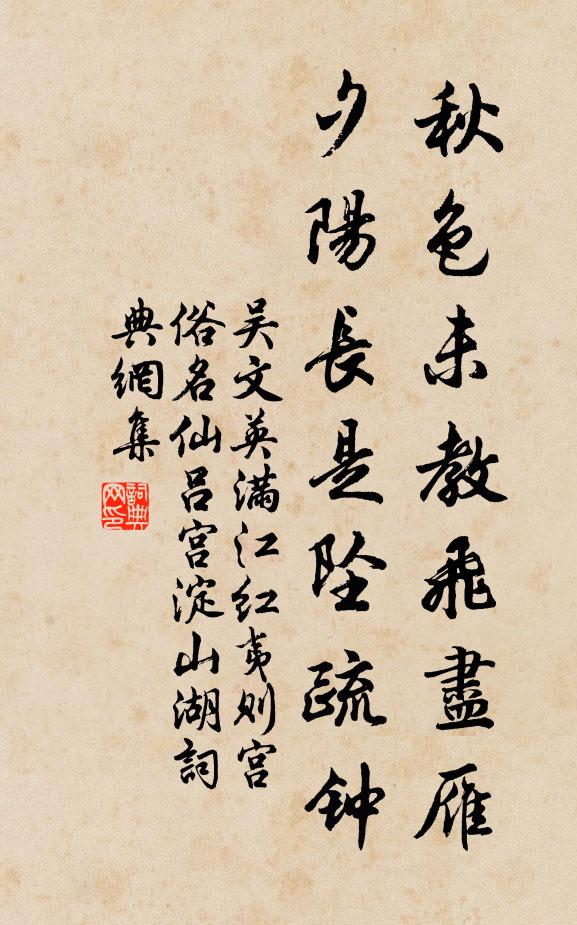 秋色未教飛盡雁
夕陽長是坠疏钟
吴文英满江红夷则宫
俗名仙吕宫淀山湖詞
典網集
詞典网印